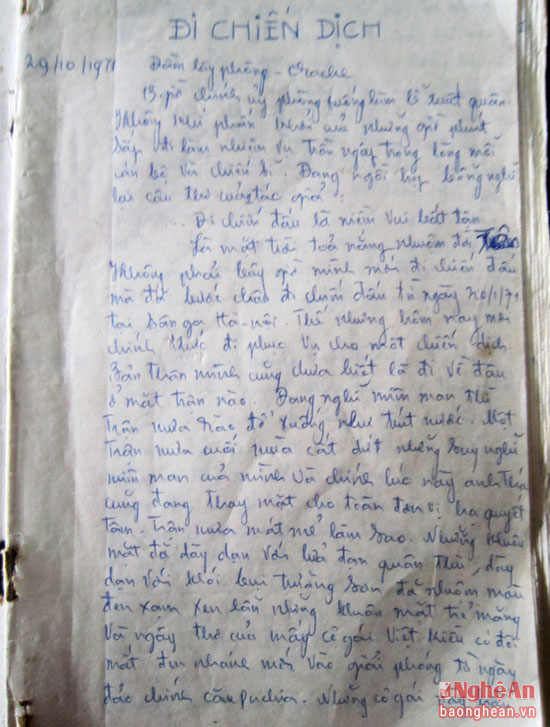 ĐI CHIẾN DỊCH
29/10/1971 Đầm lầy phông - crache
13 giờ chính uỷ phòng xuống làm lễ xuất quân
Không khí phấn khởi của những giờ phút
sắp đi làm nhiệm vụ tràn ngập trong lòng mỗi
cán bộ và chiến sĩ. Đang ngồi bỗng nghĩ
lại câu thơ của tác giả:
... Đi chiến đấu là niềm vui bất tận
Là mặt trời toả nắng nhuộm đời
Không phải bây giờ mình mới đi chiến đấu
mà đã bước chân đi chiến đấu từ ngày 20/1/71
tại Sân ga Hà-nội. Thế nhưng hôm nay mới
chính thức đi phục vụ cho một chiến dịch
Bản thân mình cũng chưa biết là đi về đâu
ở mặt trận nào. Đang nghĩ miên man thì
trận mưa rào đổ xuống như trút nước. Một
trận mưa cuối mùa cắt dứt những suy nghĩ
miên man của mình và chính lúc này anh Thái
cũng đang thay mặt cho toàn đơn vị hạ quyết
tâm. Trận mưa mát mẻ làm sao. Những khuôn
mặt đã dày dạn với lửa đạn quân thù, dày
dạn với khói bụi trường sơn đã nhuộm màu
đen xạm xen lẫn những khuôn mặt trẻ măng
và ngây thơ của mấy cô gái Việt Kiều có đôi
mắt đen nhánh mới vào giải phóng từ ngày
đảo chính cămpuchia. Những cô gái này
Nghệ An
baonghean.vn